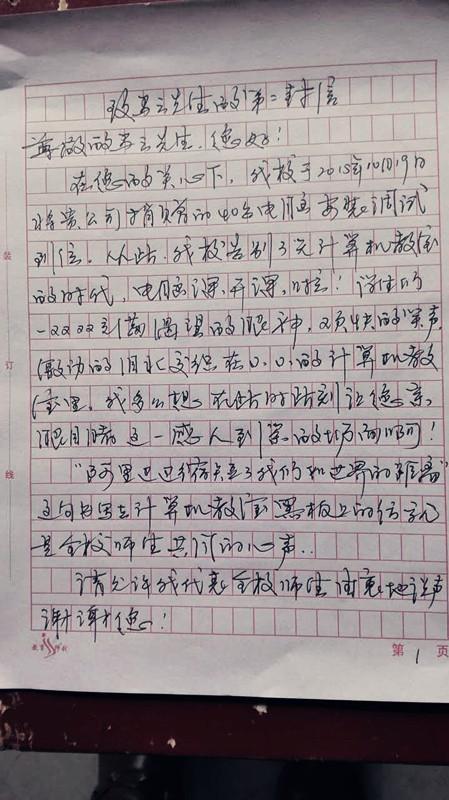 致马云先生的第二封信
尊敬的马云先生，您好！
在您的关心下，我校于2015年10月19日
将贵公司捐资的40台电脑安装调试
到位。从此，我校告别了无计算机教室
的时代，电脑课开课啦！学生们
一双双充满渴望的眼神，欢快的笑声
激动的泪水交织在的计算机教
室里。我多么想在此时此刻让您亲
眼目睹这一感人到的场面啊！
"阿里巴巴缩短了我们和世界的距离"
这句书写在计算机教室黑板上的
是全校师生共同的心声..
请允许我代表全校师生由衷地说声
谢谢您！
装
订
线
教育印刷
第 1 页